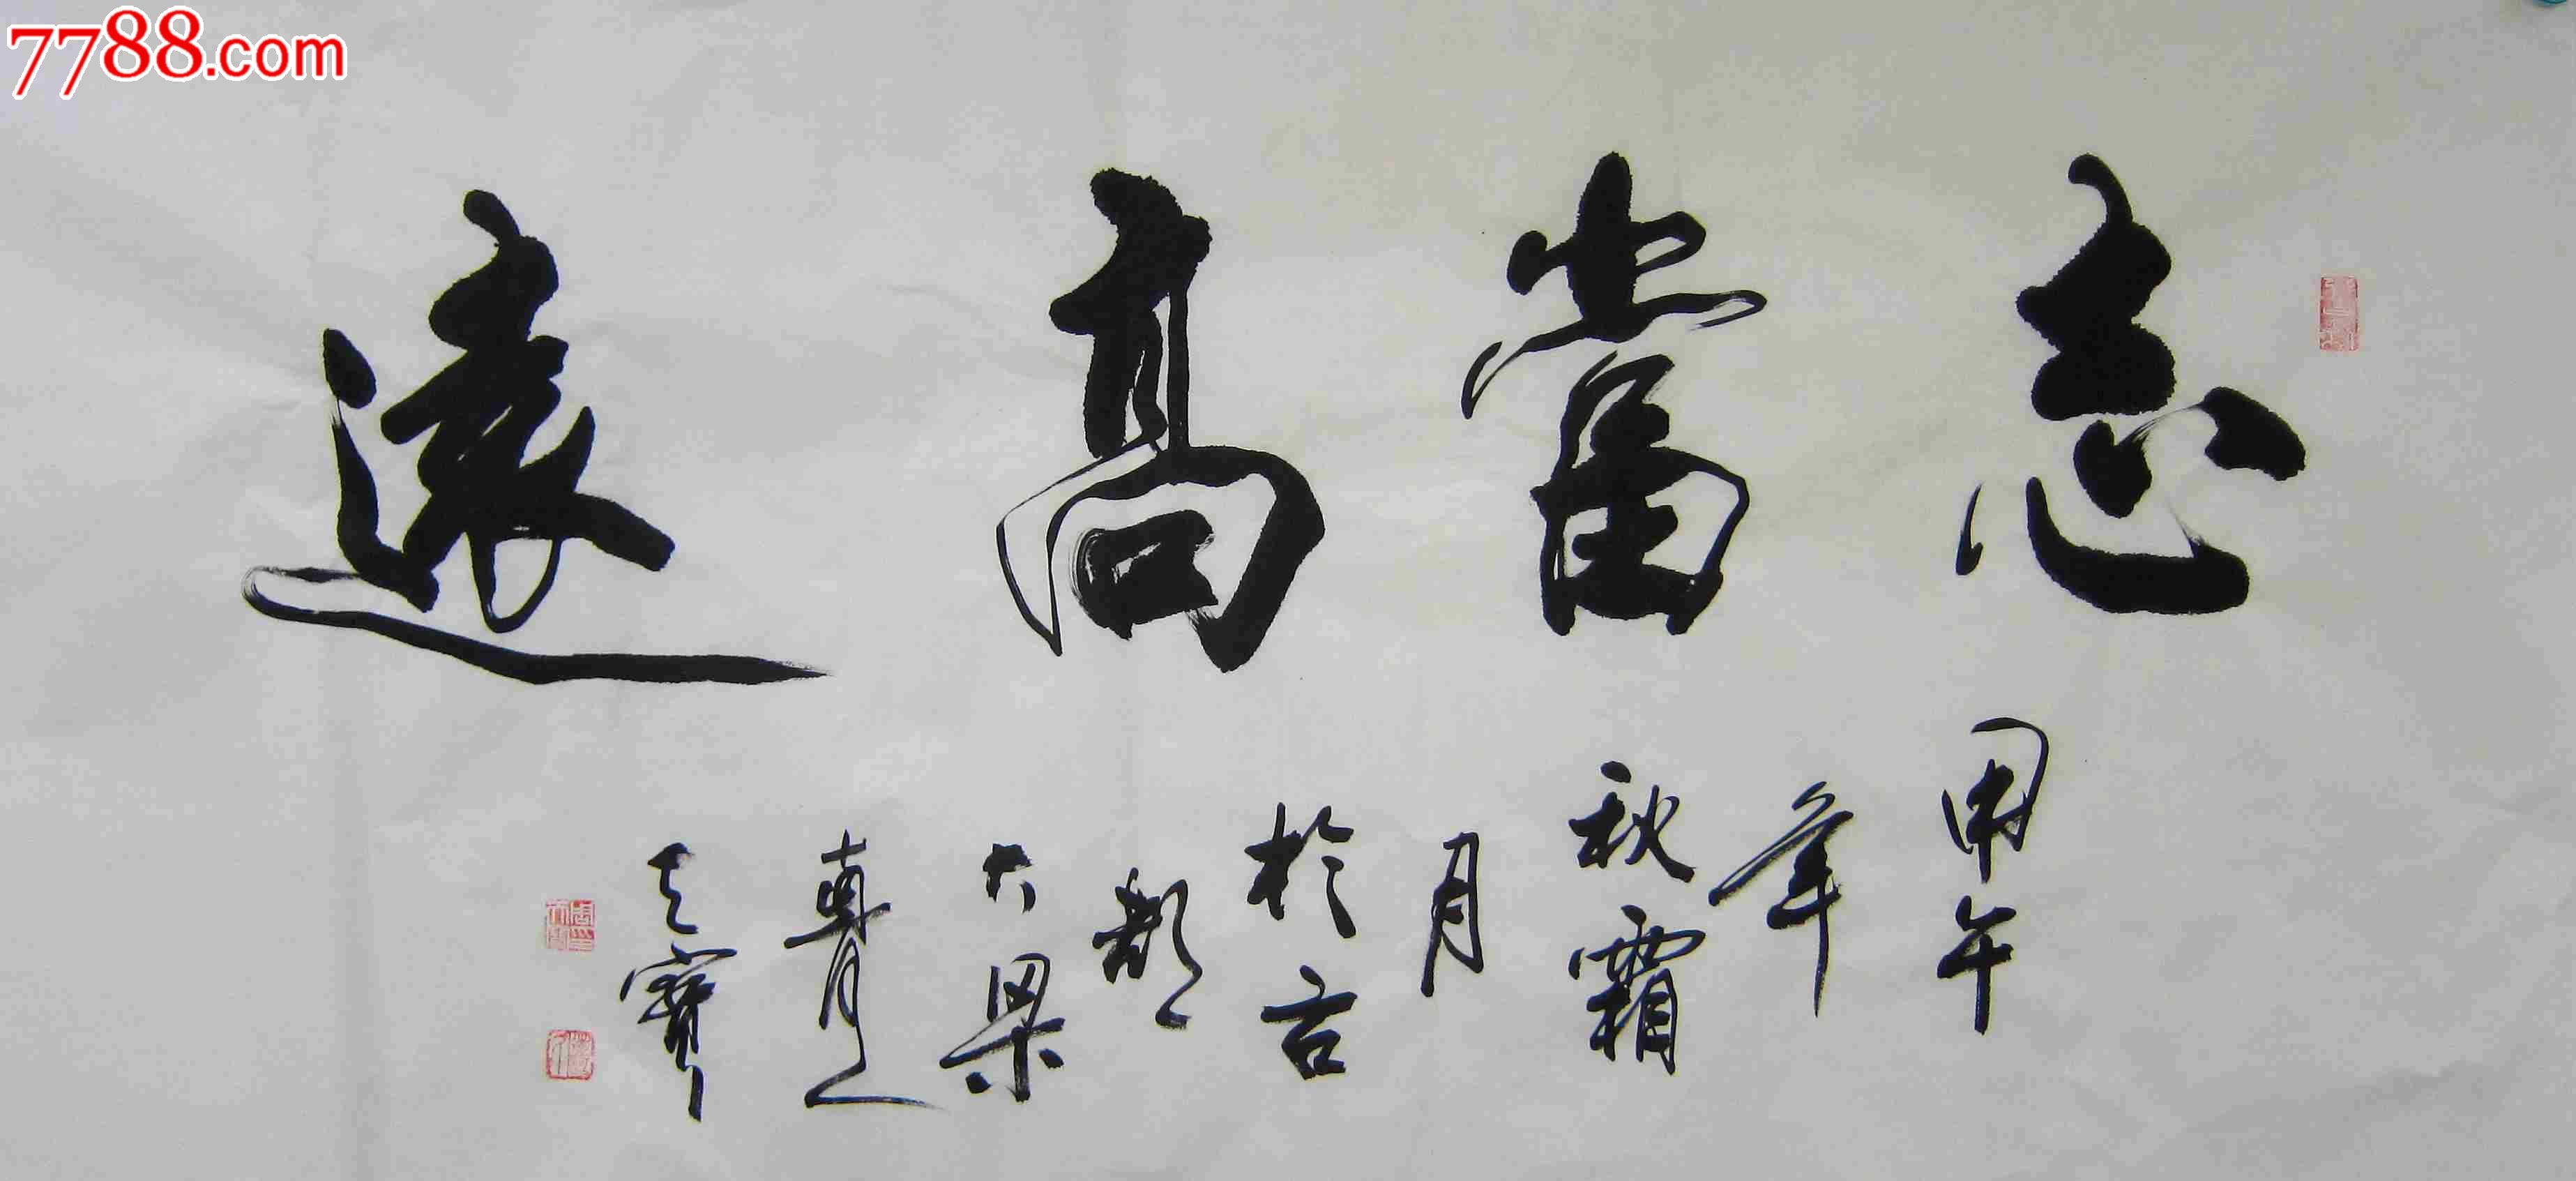 7788.com
志當高遠
甲午年秋霜月於古都大梁